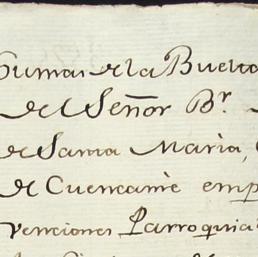 Sumas de la Buelta
del Señor Br.
de Santa Maria,
de Cuencamé emp
venciones Parroquia